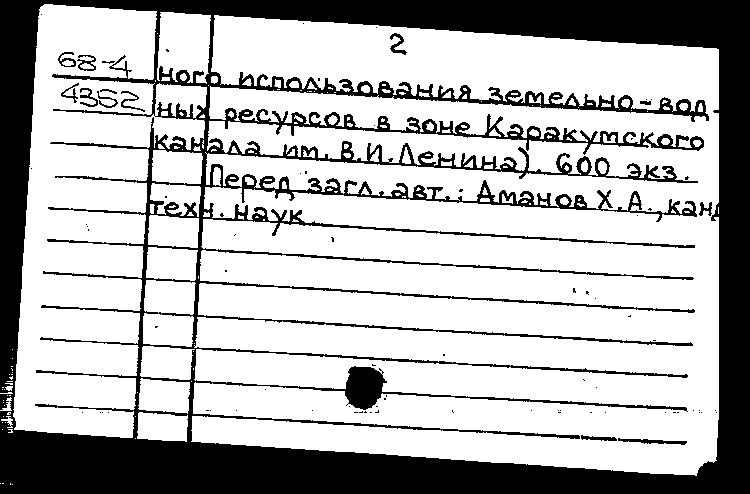 2
68-4
4352
ного использования земельно-вод-
ных ресурсов в зоне Каракумского
канала им. В.И.Ленина). 600 экз.
Перед загл. авт.: Аманов Х.А., канд
техн. наук